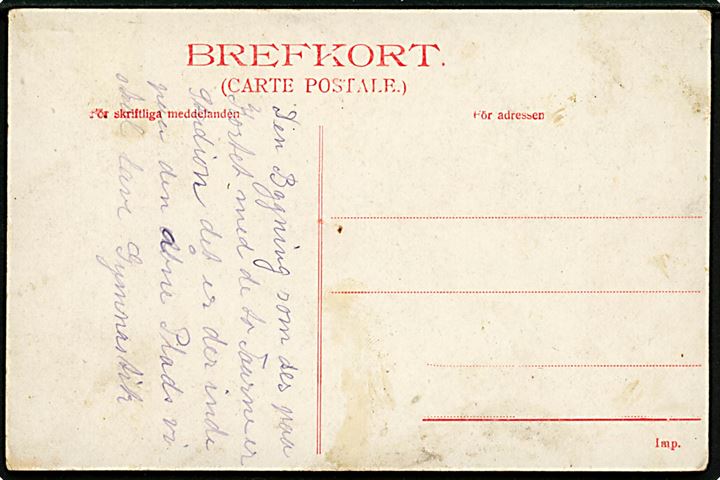 BREFKORT.
(CARTE POSTALE.)
För skriftliga meddelanden
För adressen
Den Bygning som ses paa
Kortet med de to Taarne er
Stadion det er der inde
paa den abne Plads vi
skal lave Gymnastik
Imp.